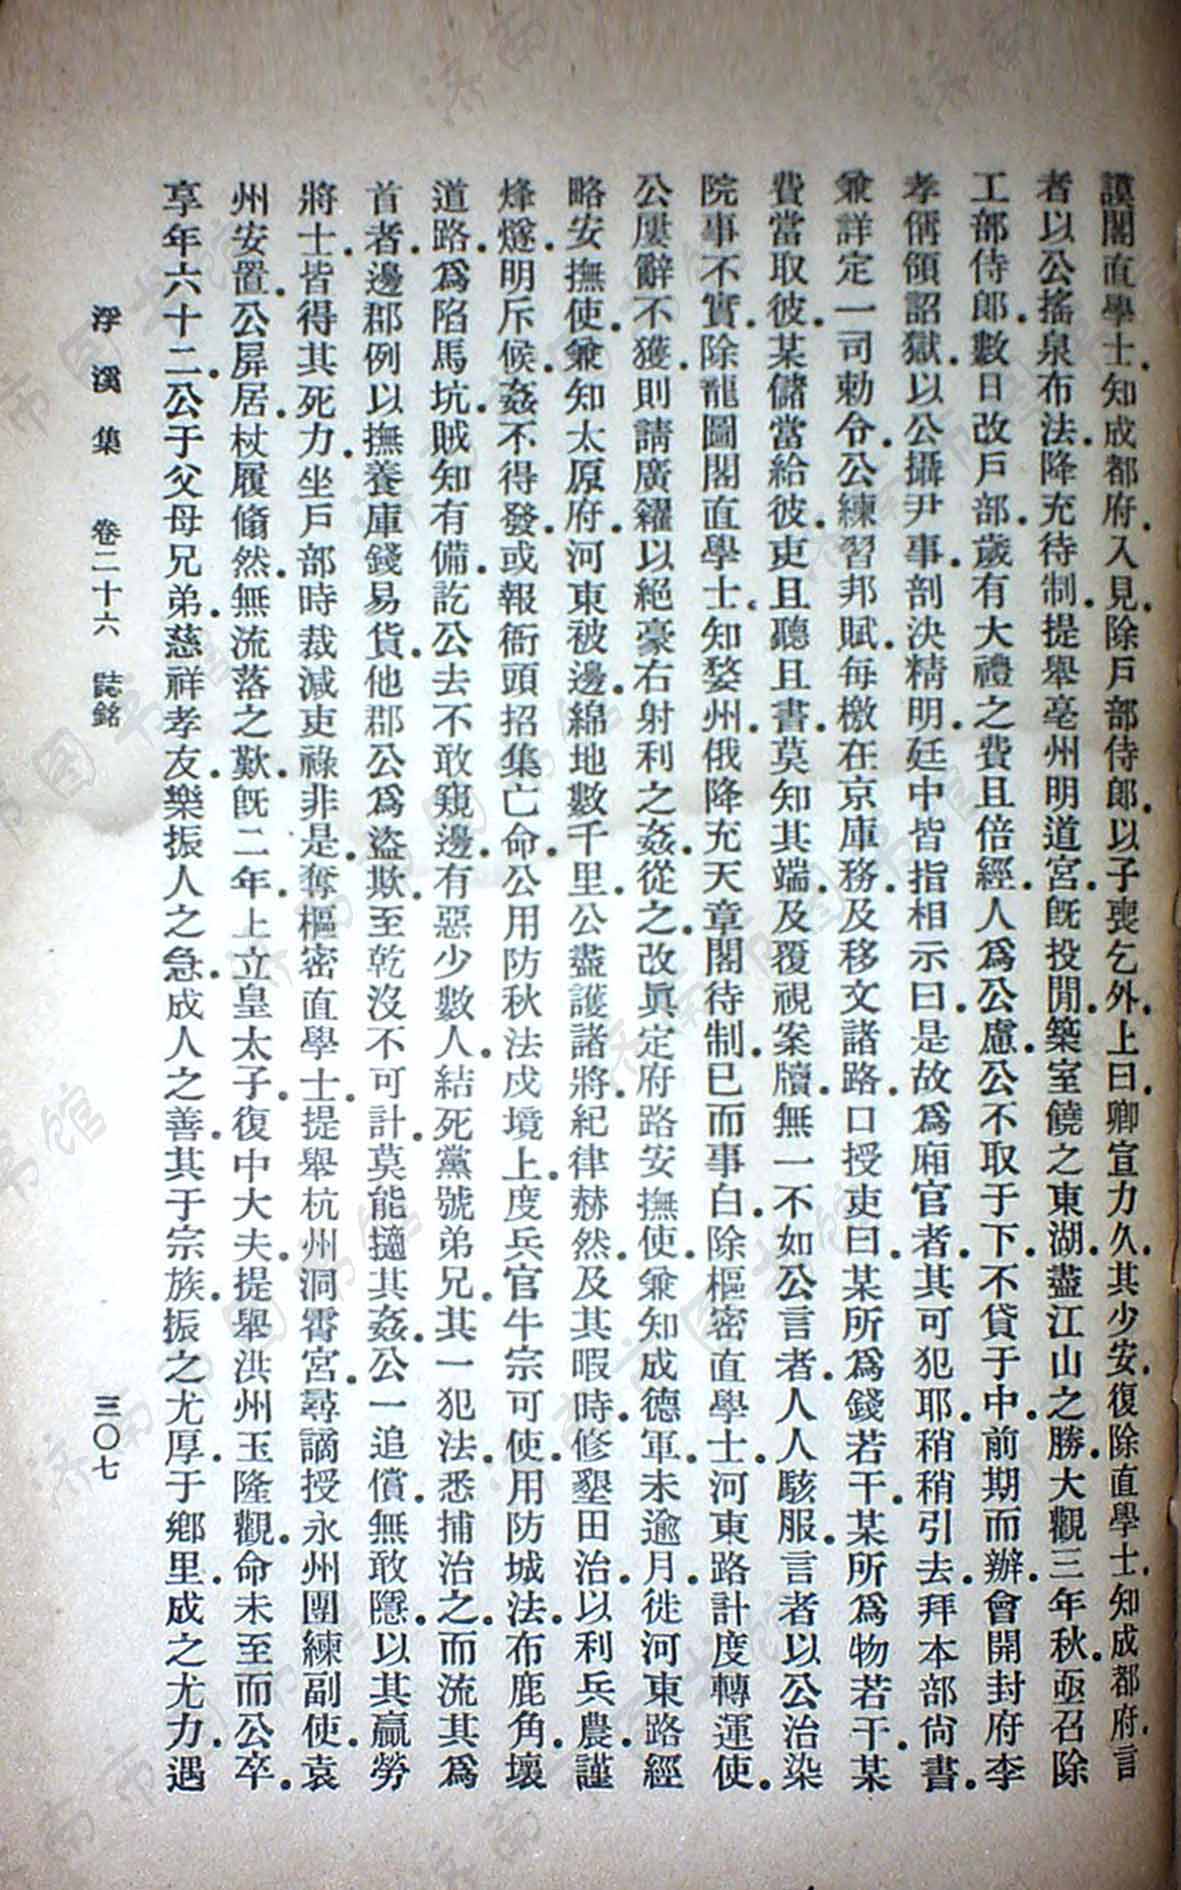 謨閣直學士.知成都府.入見.除戶部侍郎.以子喪乞外.上曰.卿宣力久.其少安.復除直學士.知成都府.言
者以公搖泉布法.降充待制.提舉亳州明道宮.旣投閒.築室饒之東湖.盡江山之勝.大觀三年秋.亟召除
工部侍郎.數日改戶部.歲有大禮之費且倍經.人爲公慮.公不取于下.不貸于中.前期而辦.會開封府李
孝偁領詔獄.以公攝尹事.剖決精明.廷中皆指相示曰.是故爲廂官者.其可犯耶.稍稍引去.拜本部尙書.
兼詳定一司勅令.公練習邦賦.每檄在京庫務.及移文諸路.口授吏曰.某所爲錢若干.某所爲物若干.某
費當取彼.某儲當給彼.吏且聽且書.莫知其端.及覆視案牘.無一不如公言者.人人駭服.言者以公治染
院事不實.除龍圖閣直學士.知婺州.俄降充天章閣待制.已而事白.除樞密直學士.河東路計度轉運使.
公屢辭不獲.則請廣糴以絕豪右射利之姦.從之.改眞定府路安撫使.兼知成德軍.未逾月.徙河東路經
略安撫使.兼知太原府.河東被邊.綿地數千里.公盡護諸將.紀律赫然.及其暇時.修墾田治.以利兵農.謹
烽燧.明斥候.姦不得發.或報衙頭招集亡命.公用防秋法戍境上.度兵官牛宗可使.用防城法.布鹿角.壞
道路.爲陷馬坑.賊知有備.訖公去不敢窺邊.有惡少數人.結死黨號弟兄.其一犯法.悉捕治之.而流其爲
首者.邊郡例以撫養庫錢易貨.他郡公爲盜欺.至乾沒不可計.莫能擿其姦.公一追償.無敢隱.以其贏勞
將士.皆得其死力.坐戶部時裁減吏祿非是.奪樞密直學士.提舉杭州洞霄宮.尋謫授永州團練副使.袁
州安置.公屛居.杖履翛然.無流落之歎.旣二年.上立皇太子.復中大夫.提舉洪州玉隆觀.命未至而公卒.
享年六十二.公于父母兄弟.慈祥孝友.樂振人之急.成人之善.其于宗族.振之尤厚.于鄉里.成之尤力.遇
浮溪集 卷二十六 誌銘 三〇七